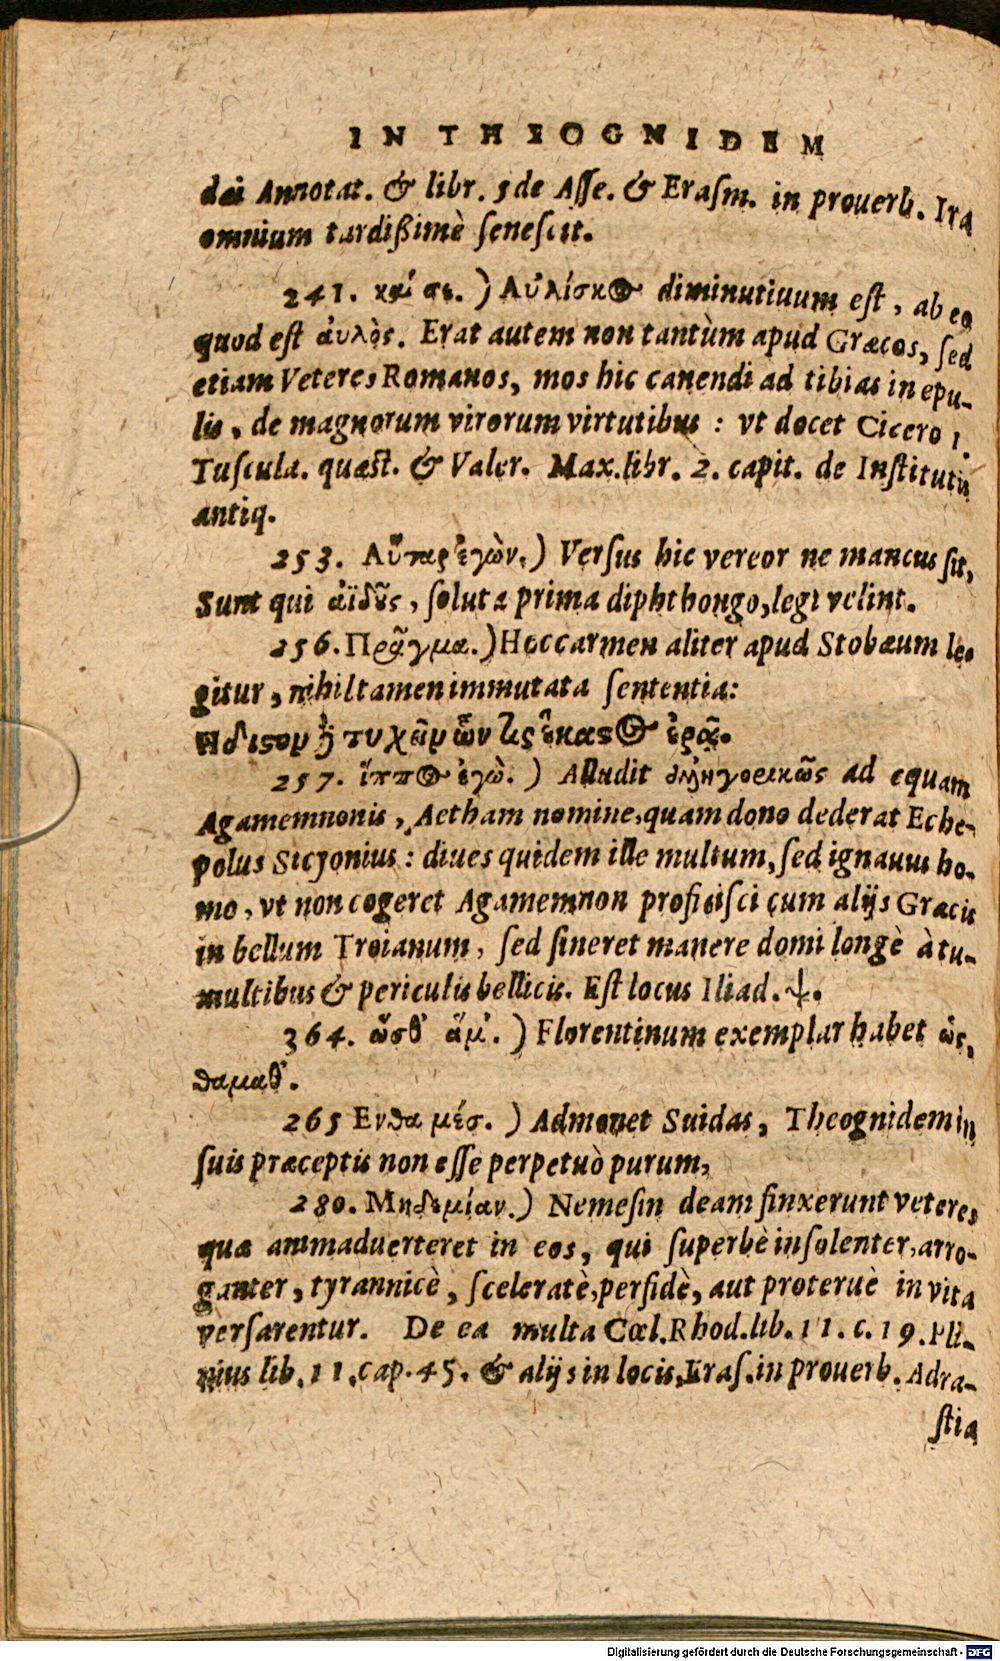 IN THEOGNIDEM
dæi Annotat. & libr. 5 de Asse. & Erasm. in prouerb. Ira
omnium tardißimè senescit.
241. καί σε.) Αὐλίσκος diminutiuum est, ab eo
quod est ἀυλὸς. Erat autem non tantùm apud Græcos, sed
etiam Veteres Romanos, mos hic canendi ad tibias in epu-
lis, de magnorum virorum virtutibus: vt docet Cicero 1.
Tuscula. quæst. & Valer. Max. libr. 2. capit. de Institutis
antiq.
253. Αὔταρ ἐγὼν.) Versus hic vereor ne mancus sit,
Sunt qui ἀϊδοῦς, soluta prima diphthongo, legi velint.
256. Πρᾶγμα.) Hoc carmen aliter apud Stobæum le-
gitur, nihil tamen immutata sententia:
Ηδιστον δὲ τυχεῖν ὧν τις ἕκαστος ἐρᾷ.
257. ἵππος ἐγὼ.) Alludit ἀλληγορικῶς ad equam
Agamemnonis, Aetham nomine, quam dono dederat Eche-
polus Sicyonius: diues quidem ille multum, sed ignauus ho-
mo, vt non cogeret Agamemnon proficisci cum alijs Græcis
in bellum Troianum, sed sineret manere domi longè à tu-
multibus & periculis bellicis. Est locus Iliad. ψ.
364. ὥσθ' ἅμ'.) Florentinum exemplar habet ὡς,
θαμαθ'.
265 Ενθα μέσ.) Admonet Suidas, Theognidem in
suis præceptis non esse perpetuò purum,
280. Μηδεμίαν.) Nemesin deam finxerunt veteres
quæ animaduerteret in eos, qui superbè insolenter, arro-
ganter, tyrannicè, sceleratè, perfidè, aut proteruè in vita
versarentur. De ea multa Cœl. Rhod. lib. 11. c. 19. Pli-
nius lib. 11. cap. 45. & alijs in locis, Eras. in prouerb. Adra-
stia
Digitalisierung gefördert durch die Deutsche Forschungsgemeinschaft - DFG